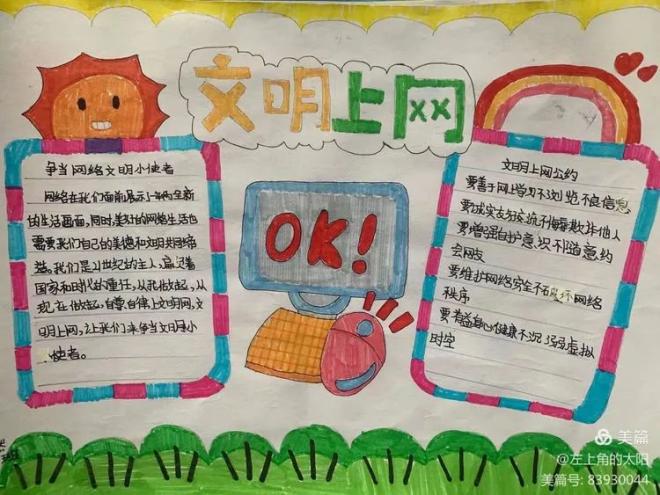 文明上网
争当网络文明小使者
网络在我们面前展示了一幅全新
的生活画面,同时,美好的网络生活也
需要我们自己的美德和文明共同络
造。我们是21世纪的主人,肩负着
国家和时代的重任,从我做起,从
现在做起,自尊、自律,上文明网,文
明上网,让我们来争当文明小
使者。
OK!
文明上网公约
要善于网上学习不浏览不良信息
要诚实友好交流不侮辱欺诈他人
要增强自护意识不随意约
会网友
要维护网络安全不破坏网络
秩序
要有益身心健康不沉溺虚拟
时空
美篇
@左上角的太阳
美篇号: 83930044